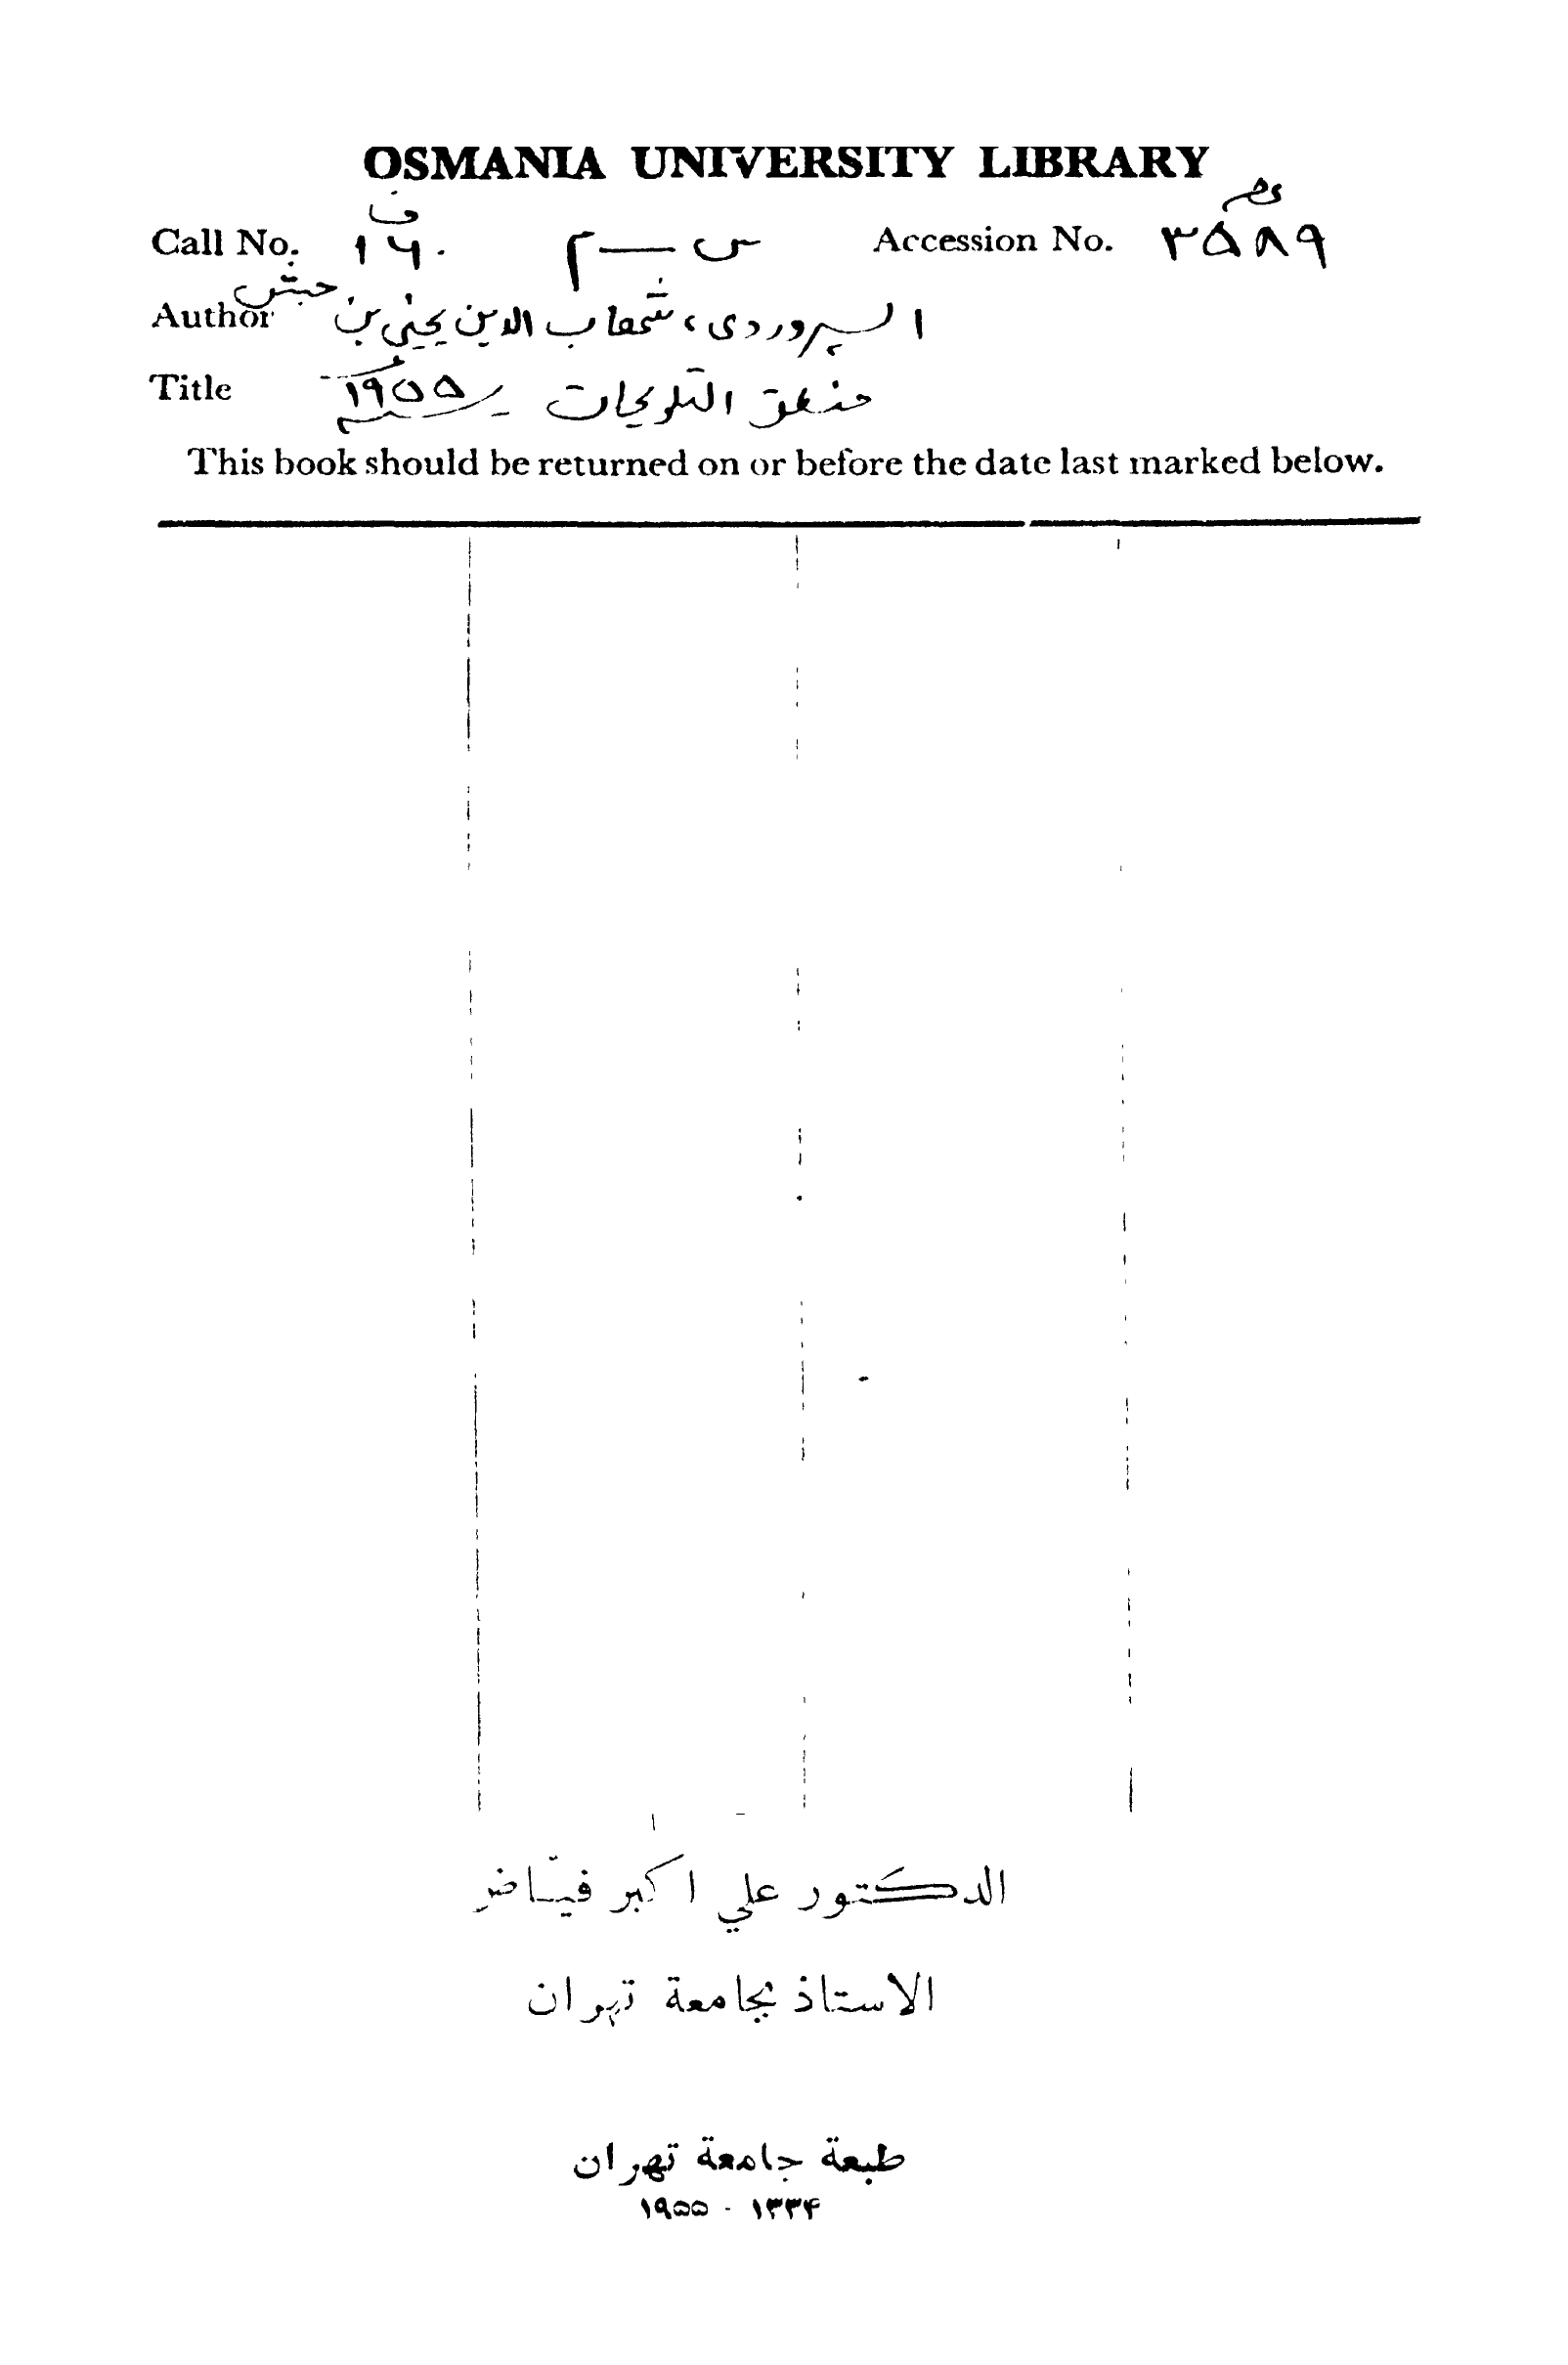 OSMANIA UNIVERSITY LIBRARY
Call No. ف ١٦٠ س — م Accession No. عص ٣٥٨٩
Author السهروردی، شهاب الدین یحیٰی بن حبش
Title منطق التلویحات ١٩٥٥
This book should be returned on or before the date last marked below.
الدكتور علي اكبر فيّاض
الاستاذ بجامعة تهران
طبعة جامعة تهران
۱۳۳۴ - ۱۹۵۵